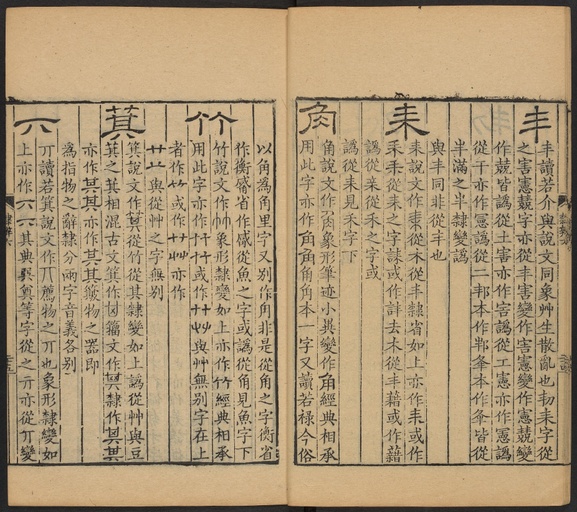 丯
丯讀若介與說文同象艸生散亂也㓞耒字從
之害憲兢字亦從丰害變作害憲變作憲兢變
作兢皆譌從土害亦作害譌從工憲亦作憲譌
從干亦作憲譌從二邦本作邦夆本作夆皆從
半滿之半隸變譌
與丰同非從丰也
耒
耒說文作耒從木從丰隸省如上亦作耒或作
耒耒從耒之字誄或作誄去木從丰藉或作藉
譌從耒從釆之字或
譌從耒見釆字下
角
角說文作角象形筆迹小異變作角經典相承
用此字亦作角角角角本一字又讀若祿今俗
以角為角里字又別作角非是從角之字衡省
作衡觱省作觱從魚之字或譌從角見魚字下
竹
竹說文作竹象形隸變如上亦作竹經典相承
用此字亦作竹竹或作艹艸與艸無別字在上
者作竹或作艹艸亦作
艹䒑與從艸之字無別
萁
箕說文作箕從竹從其隸變如上譌從艸與豆
萁之萁相混古文箕作𠀠籒文作其隸作其其
亦作其其亦作其其籔物之器即
為指物之辭隸分兩字音義各別
丌
丌讀若箕說文作丌薦物之丌也象形隸變如
上亦作六六其典巽奠等字從之亓亦從丌變